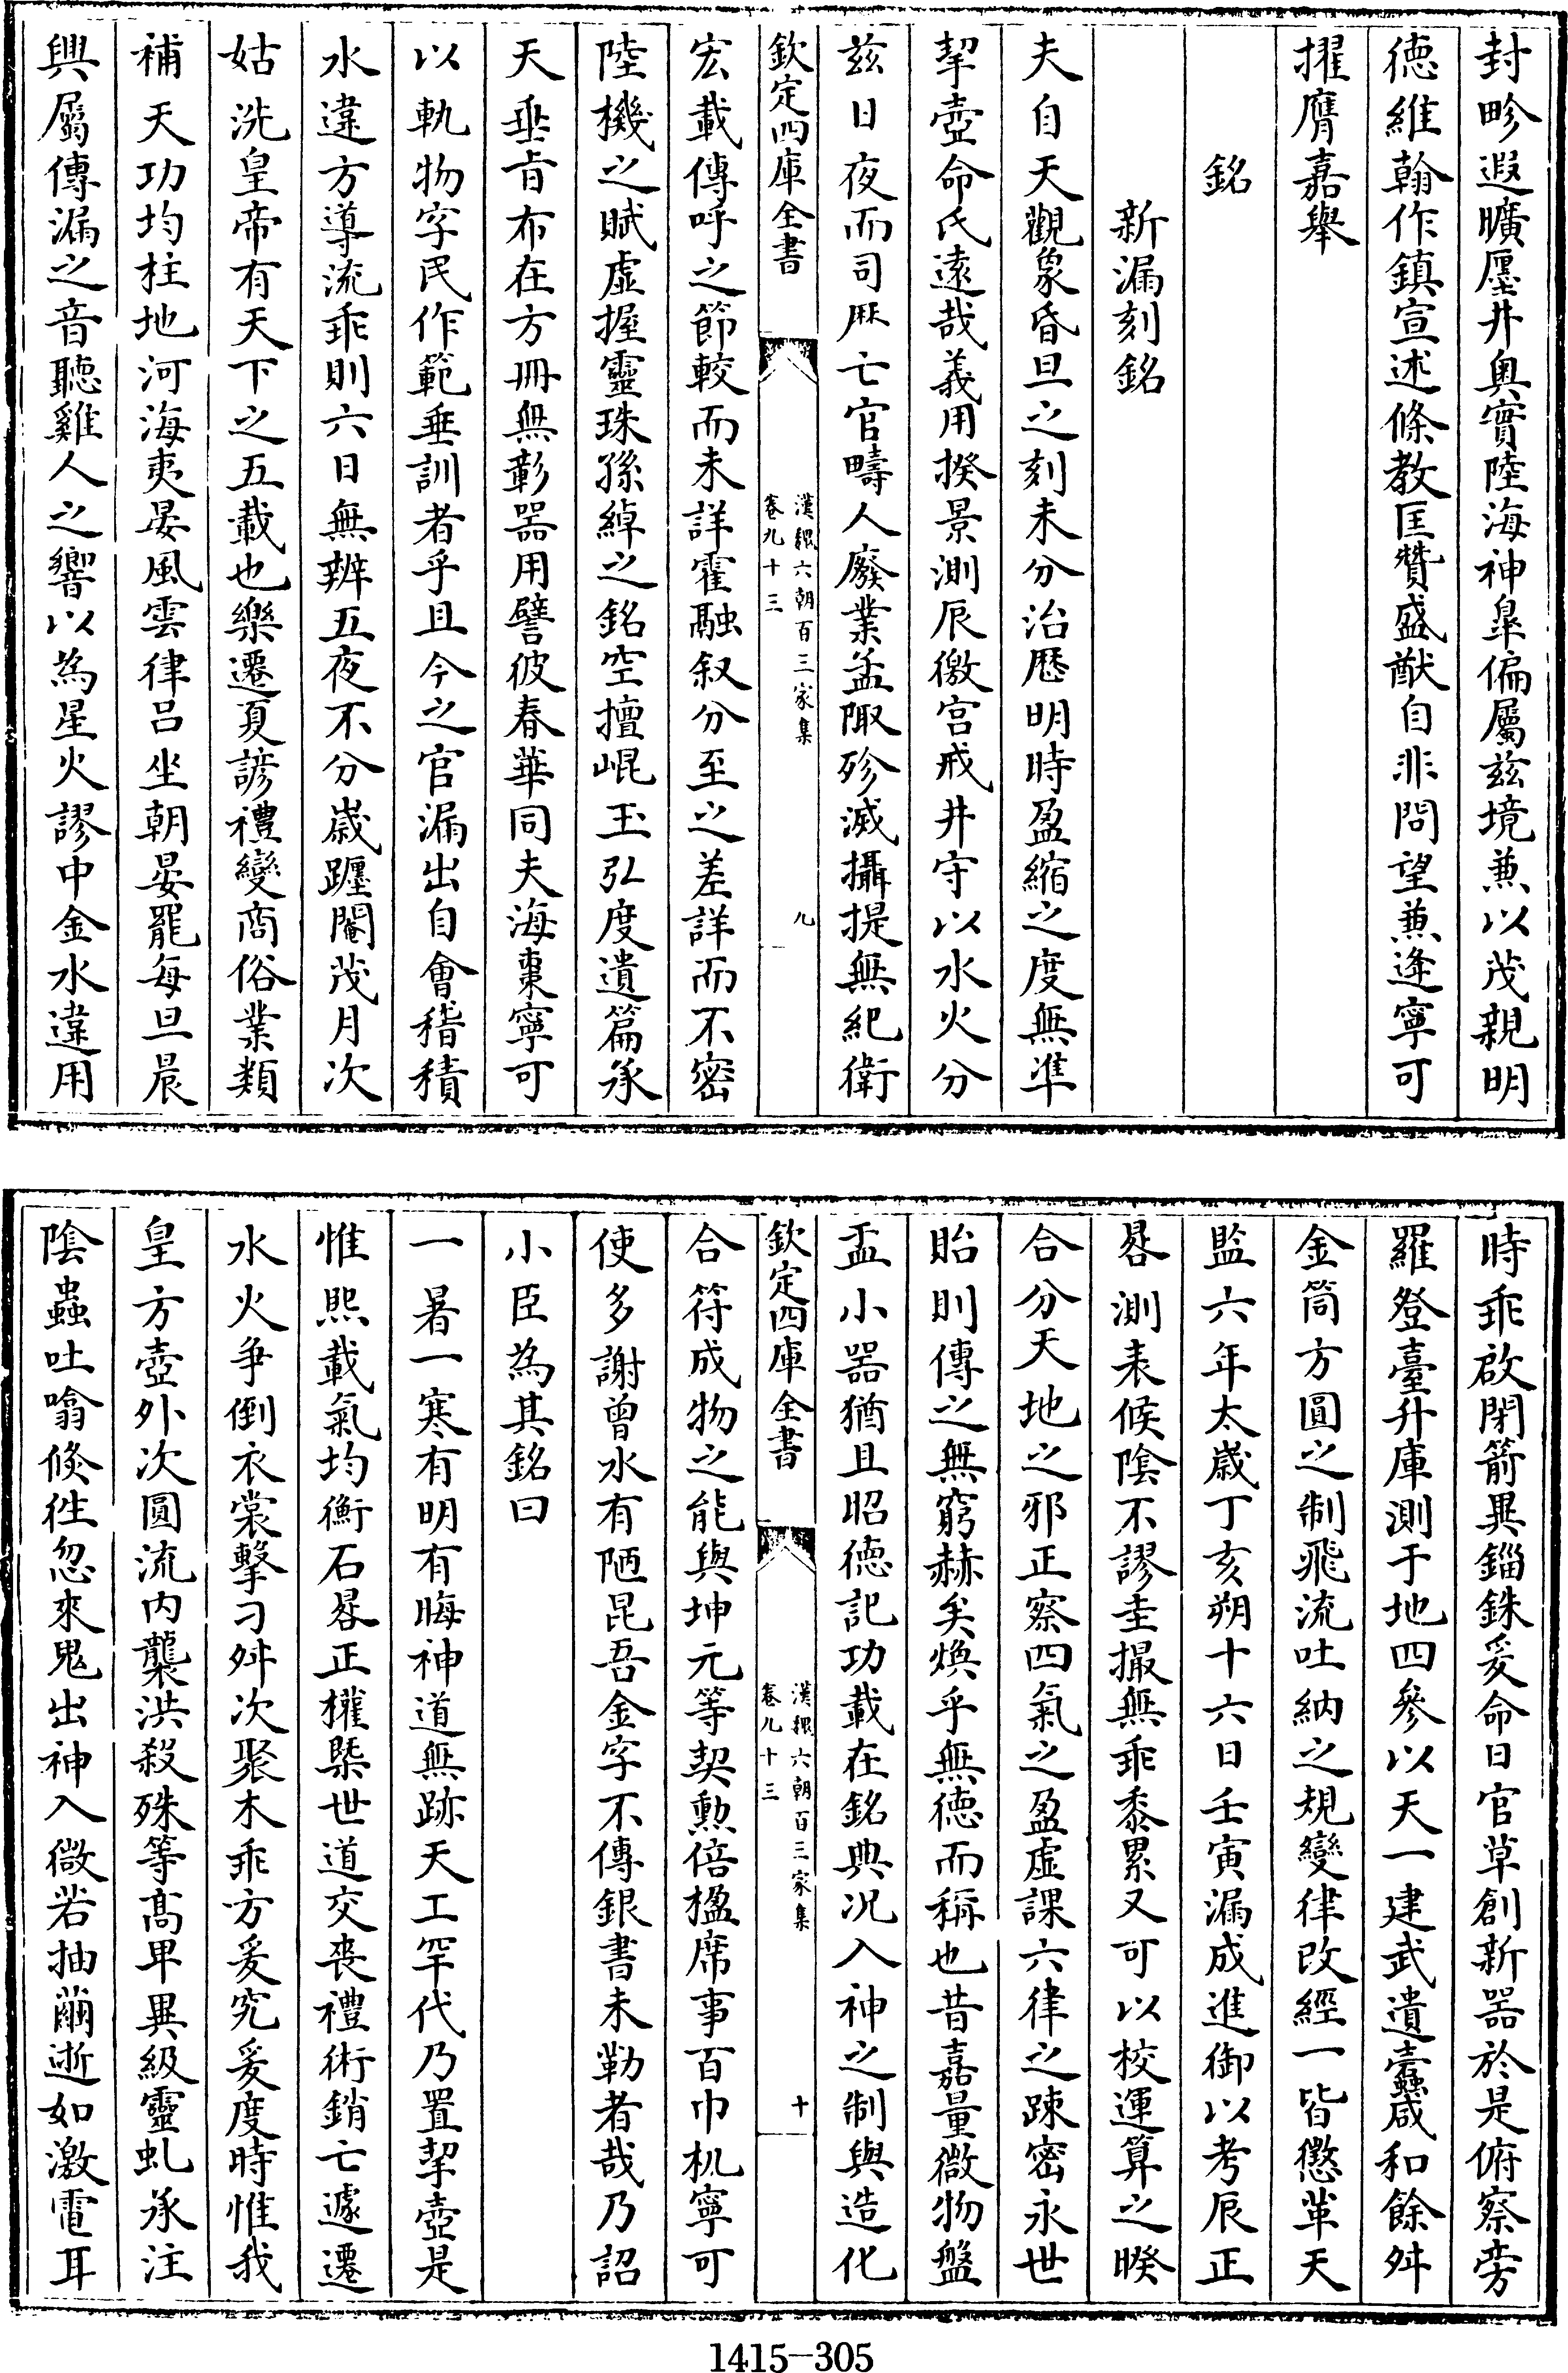 封畛遐曠廛井奥實陸海神臯偏屬兹境兼以茂親明
德維翰作鎮宣述條教匡贊盛猷自非問望兼逄寧可
擢膺嘉舉
銘
新漏刻銘
夫自天觀象昏旦之刻未分治厯明時盈縮之度無準
挈壺命氏遠哉義用揆景測辰徼宫戒井守以水火分
兹日夜而司厯亡官疇人廢業孟陬殄滅攝提無紀衛
欽定四庫全書
漢魏六朝百三家集
卷九十三
九
宏載傳呼之節較而未詳霍融叙分至之差詳而不密
陸機之賦虛握靈珠孫綽之銘空擅崐玉弘度遺篇承
天垂㫖布在方冊無彰器用譬彼春華同夫海棗寧可
以軌物字民作範垂訓者乎且今之官漏出自會稽積
水違方導流乖則六日無辨五夜不分嵗躔閹茂月次
姑洗皇帝有天下之五載也樂遷夏諺禮變商俗業類
補天功均柱地河海夷晏風雲律吕坐朝晏罷每旦晨
興屬傳漏之音聽雞人之響以為星火謬中金水違用
時乖啟閉箭異錙銖爰命日官草創新器於是俯察旁
羅登臺升庫測于地四參以天一建武遺蠧咸和餘舛
金筒方圓之制飛流吐納之規變律改經一皆懲革天
監六年太嵗丁亥朔十六日壬寅漏成進御以考辰正
晷測表候陰不謬圭撮無乖黍累又可以校運算之睽
合分天地之邪正察四氣之盈虛課六律之踈密永世
貽則傳之無窮赫矣煥乎無德而稱也昔嘉量微物盤
盂小器猶且昭德記功載在銘典况入神之制與造化
欽定四庫全書
漢魏六朝百三家集
卷九十三
十
合符成物之能與坤元等契勲倍楹席事百巾机寧可
使多謝曾水有陋昆吾金字不傳銀書未勒者哉乃詔
小臣為其銘曰
一暑一寒有明有晦神道無跡天工罕代乃置挈壺是
惟熙載氣均衡石晷正權槩世道交喪禮術銷亡遽遷
水火爭倒衣裳擊刁舛次聚木乖方爰究爰度時惟我
皇方壺外次圓流内襲洪殺殊等髙卑異級靈虬承注
陰蟲吐噏倐徃忽來鬼出神入微若抽繭逝如激電耳
1415-305